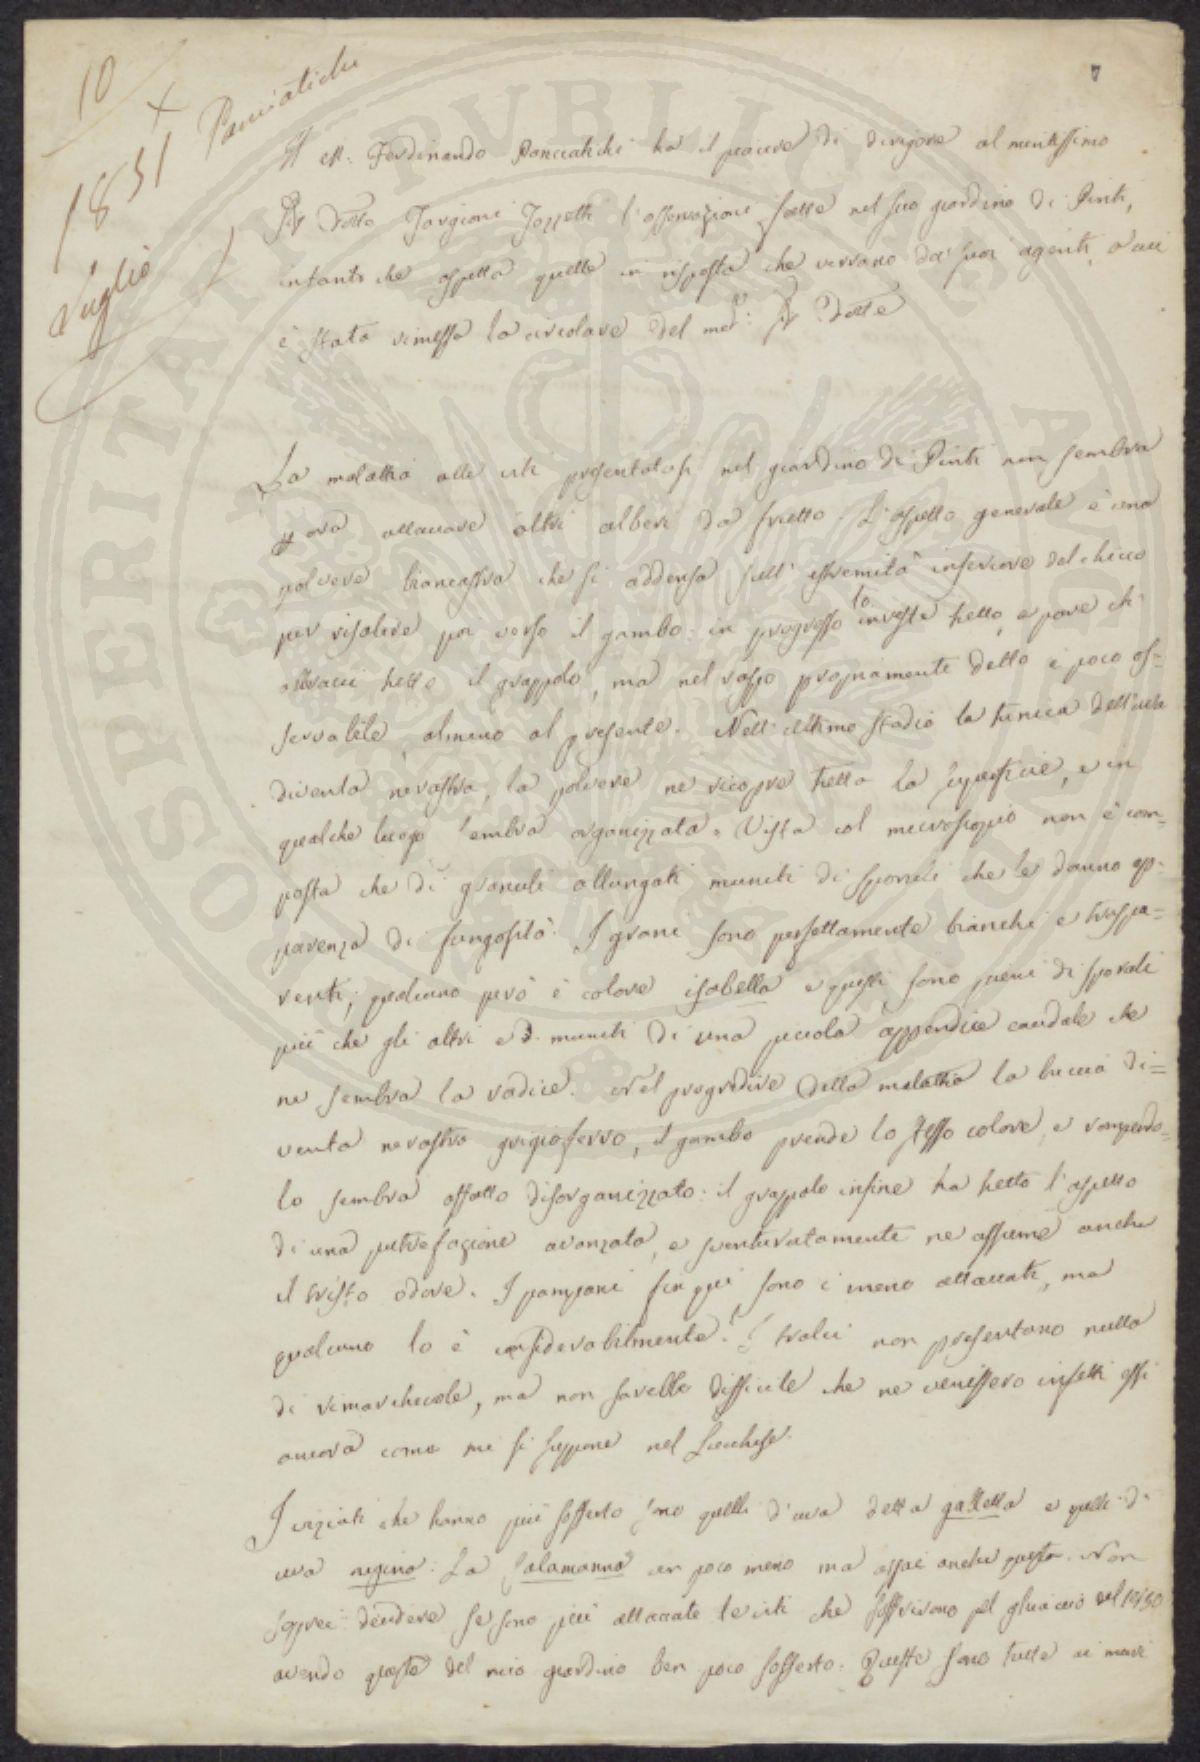 10
Panciatichi
1851
Luglio
7
Il M. Ferdinando Panciatichi ha il piacere di dirigere al meritissimo
Sig Dotto Targioni Tozzetti l'osservazioni fatte nel suo giardino di Pinti,
intanto che aspetta quelle in risposta che verrano da' suoi agenti, a cui
è stata rimessa la circolare del med.º Sig Dotto
La malattia alle viti presentatasi nel giardino di Pinti non sembra
p ora attaccare altri alberi da frutto. L'aspetto generale è una
polvere biancastra che si addensa sull' estremità inferiore del chicco
per risalire poi verso il gambo: in progresso lo investe tutto, e pare che
attacchi tutto il grappolo, ma nel raspo propriamente detto è poco os=
servabile, almeno al presente. Nell'ultimo stadio la tunica dell'uva
diventa nerastra, la polvere ne ricopre tutta la superficie, e in
qualche luogo sembra organizzata. Vista col microscopio non è com=
posta che di granuli allungati muniti di sporuli che le danno ap=
parenza di fungosità. I grani sono perfettamente bianchi e traspa=
renti; qualcuno però è colore isabella e questi sono pieni di sporuli
più che gli altri e muniti di una piccola appendice caudale che
ne sembra la radice. Nel progredire della malattia la buccia di=
venta nerastra grigioferro, il gambo prende lo stesso colore, e rompendo=
lo sembra affatto disorganizzato: il grappolo infine ha tutto l'aspetto
di una putrefazione avanzata, e sventuratamente ne assume anche
il tristo odore. I pampani fin qui sono i meno attaccati, ma
qualcuno lo è considerabilmente. I tralci non presentano nulla
di rimarchevole, ma non sarebbe difficile che ne venissero infetti essi
ancora come mi si suppone nel Lucchese.
I viziati che hanno più sofferto sono quelli d'uva detta galletta e quelli di
uva regina. La Salamanna un poco meno ma assai anche questa. Non
saprei decidere se sono più attaccate le viti che soffrirono pel ghiaccio del 1850
avendo queste del mio giardino ben poco sofferto. Queste sono tutte ai muri